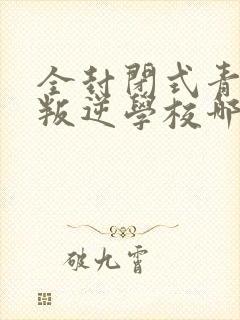 全封閉式青
叛逆學校哪
破九霄